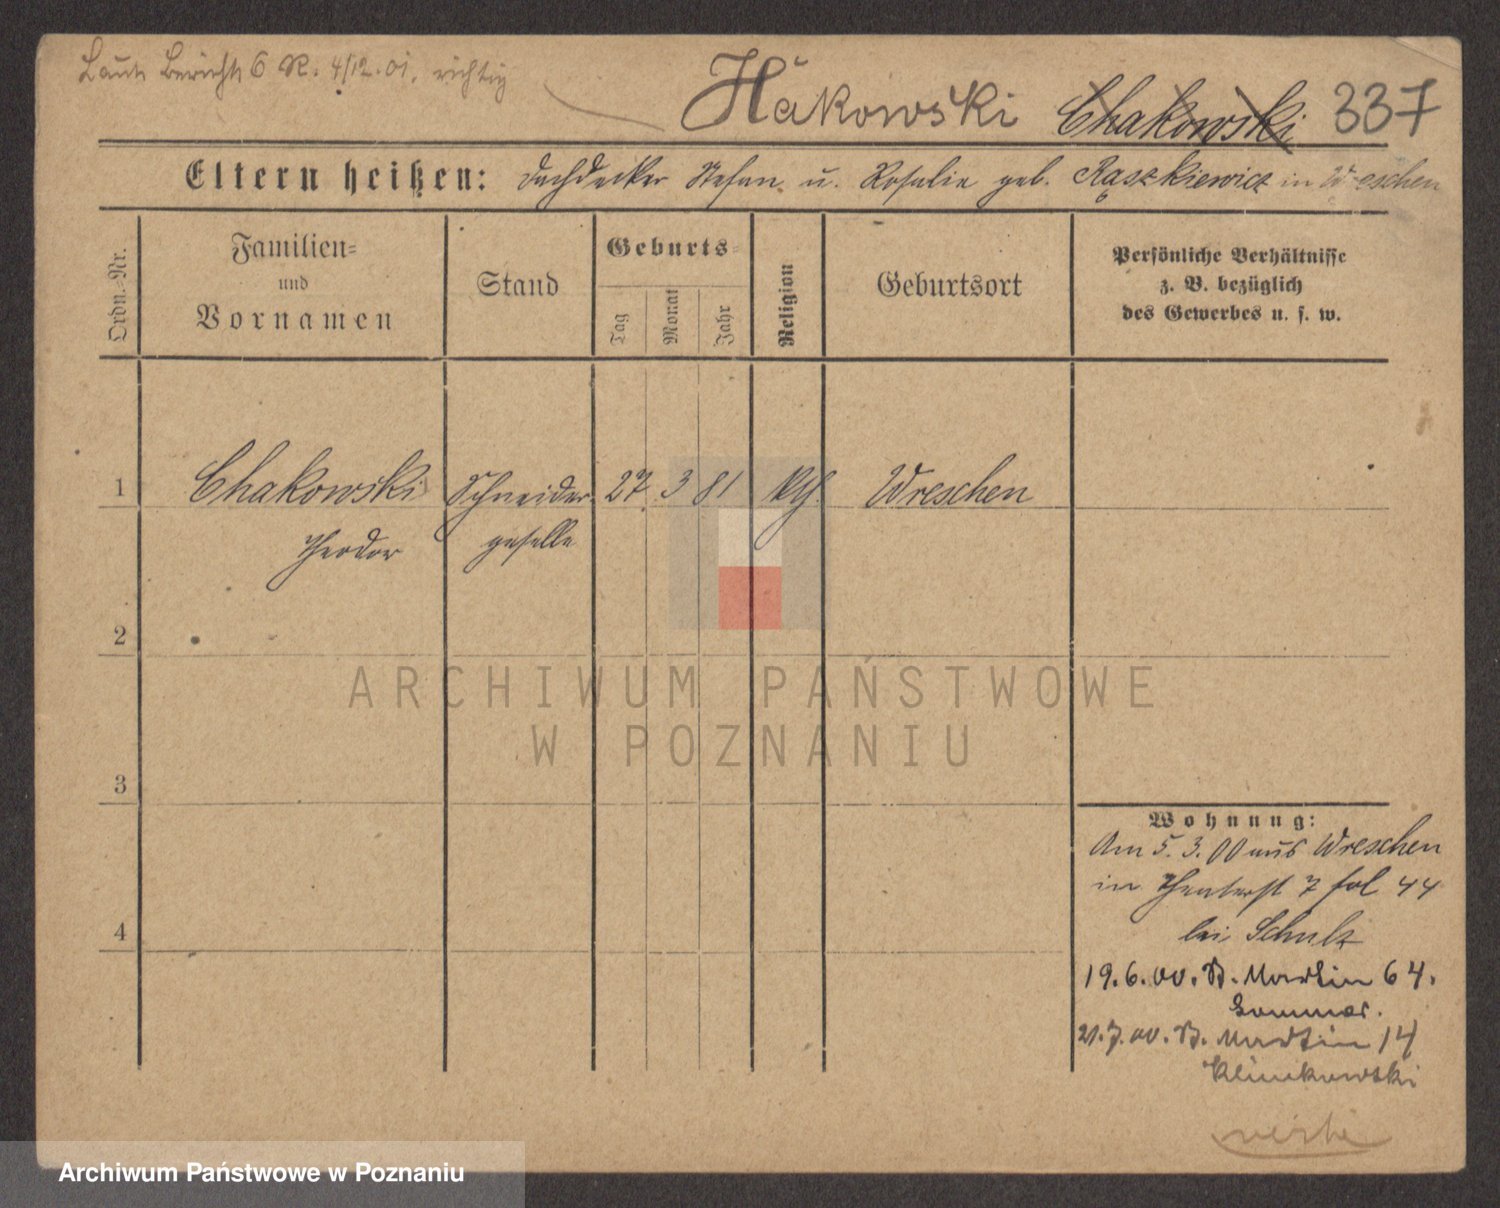 Laut Bericht 6 R. 4/12.01. richtig
Hakowski Chakowski 337
Eltern heißen: Dachdecker Stefan u. Rosalie geb. Raszkiewicz in Wreschen
Ordn.=Nr.
Familien=
und
Vornamen
Stand
Geburts=
Tag
Monat
Jahr
Religion
Geburtsort
Persönliche Verhältnisse
z. B. bezüglich
des Gewerbes u. s. w.
1 Chakowski Schneider 27 3 81 kth. Wreschen
Theodor geselle
2
3
4
Wohnung:
Am 5.3.00 aus Wreschen
in Theaterst 7 fol 44
bei Schulz
19.6.00. St. Martin 64.
Sommer.
21.7.00. St. Martin 14
Klimkowski
ARCHIWUM PAŃSTWOWE
W POZNANIU
Archiwum Państwowe w Poznaniu